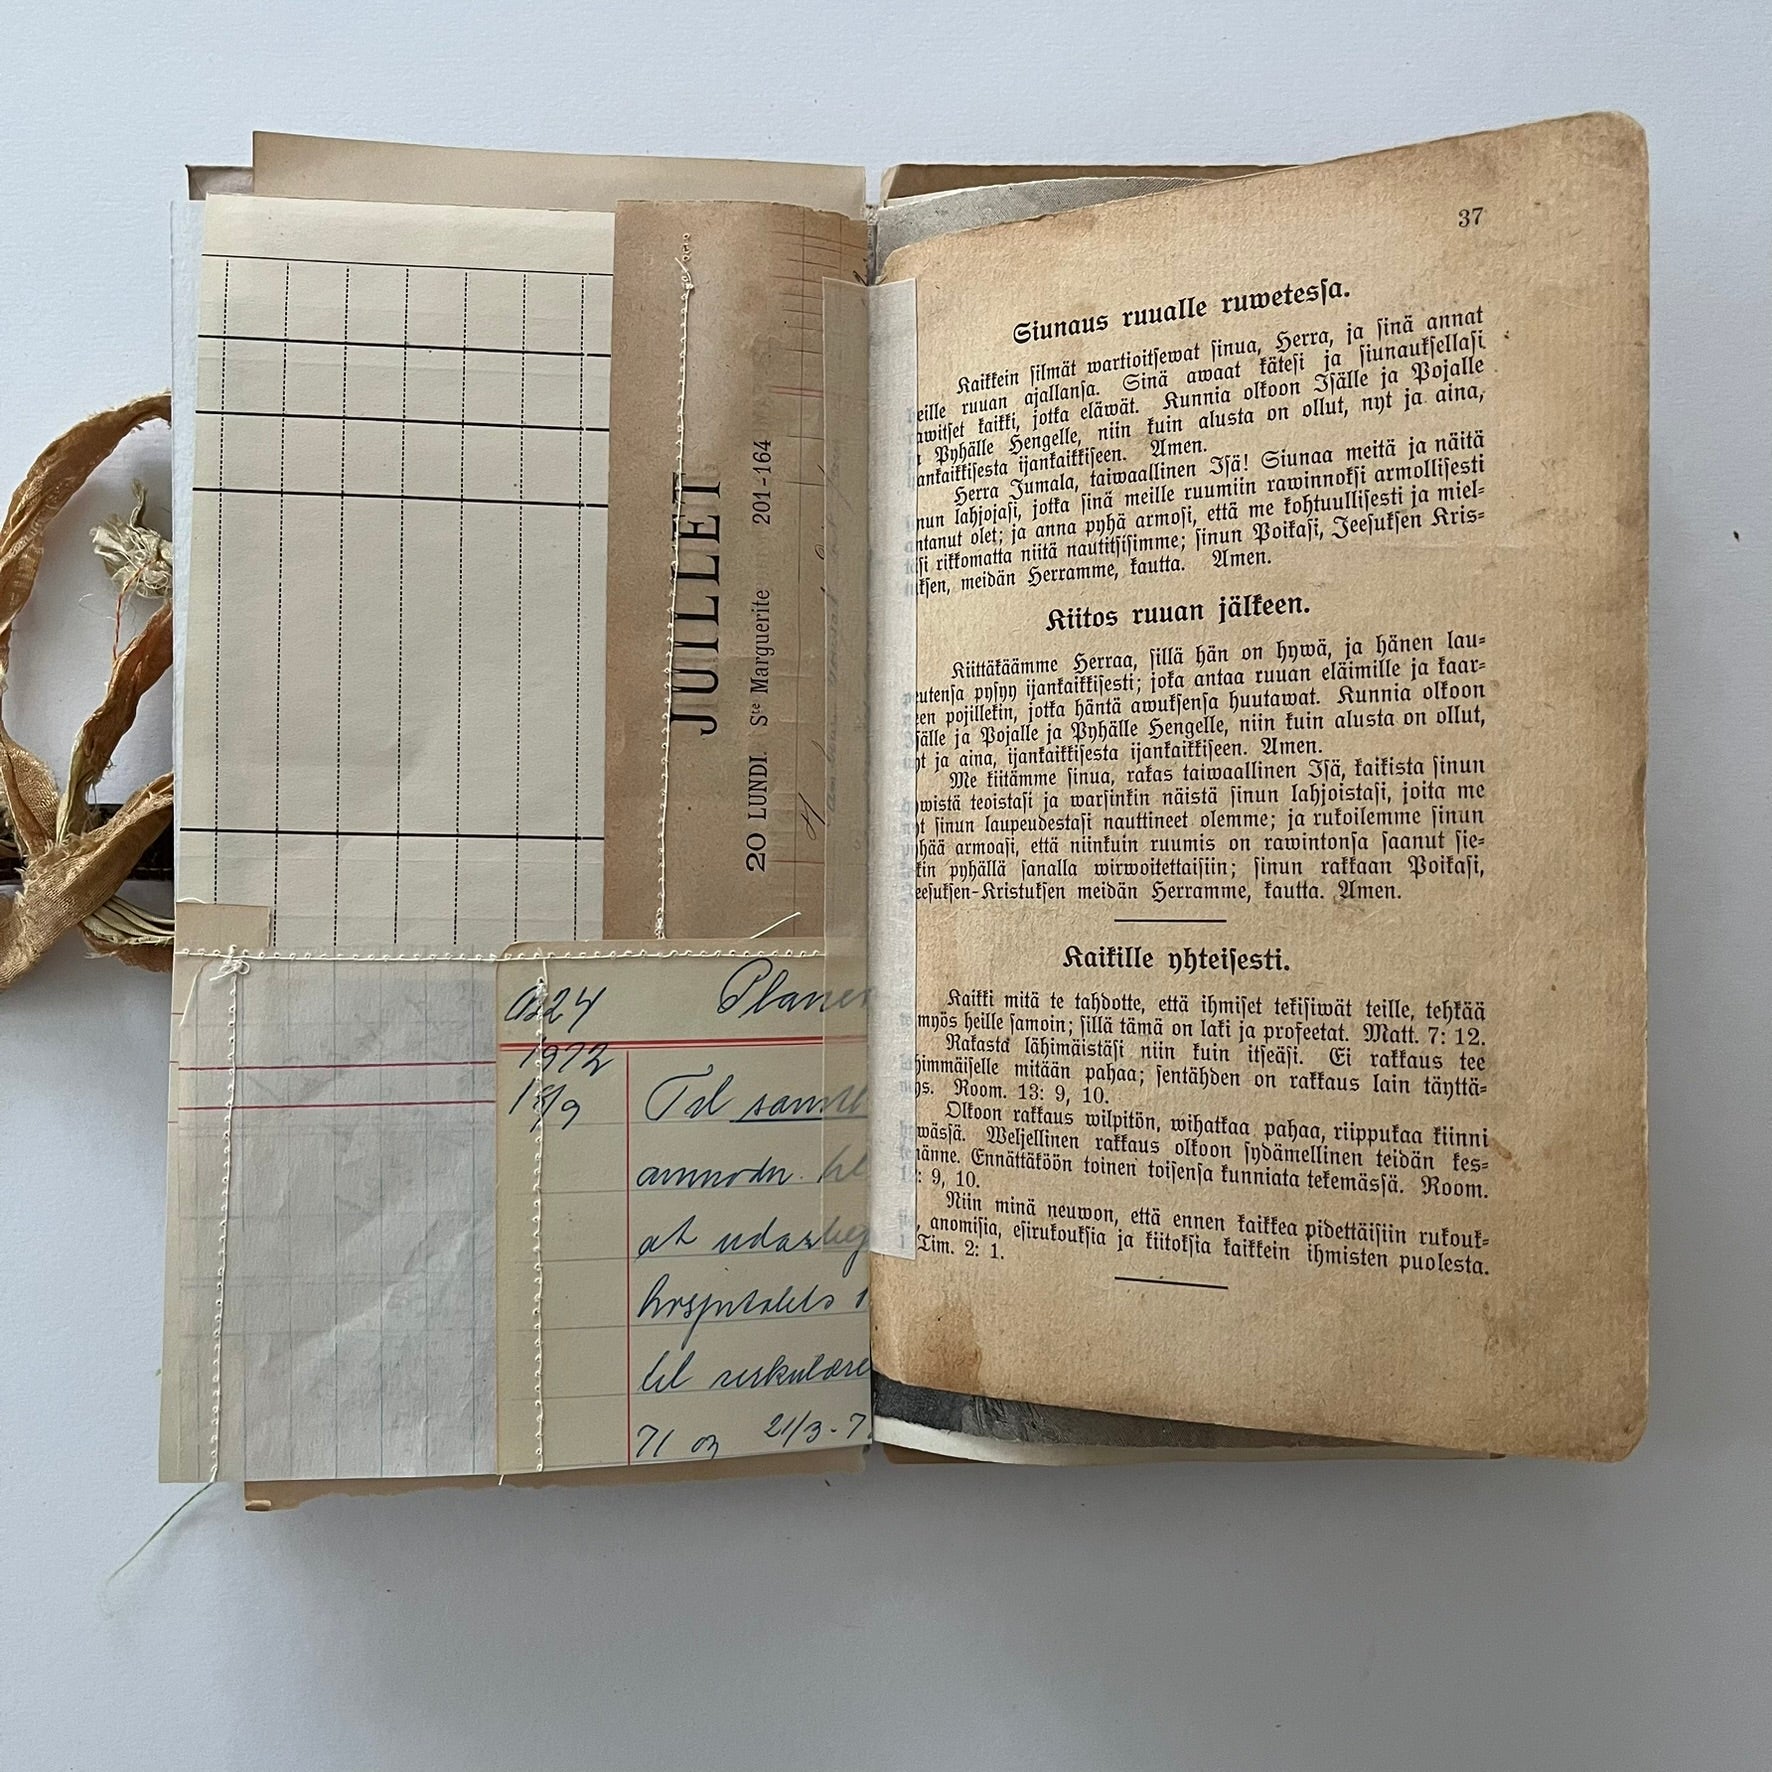 JUILLET
20 LUNDI. Ste Marguerite 201-164
B24 Planer
1972
18/9 Til samtl
ammodn. til
at udarbej
hospitalets
til cirkulære
71 og 21/3-7
37
Siunaus ruualle ruwetessa.
Kaikkein silmät wartioitsewat sinua, Herra, ja sinä annat
eille ruuan ajallansa. Sinä awaat kätesi ja siunauksellasi
awitset kaikki, jotka eläwät. Kunnia olkoon Isälle ja Pojalle
a Pyhälle Hengelle, niin kuin alusta on ollut, nyt ja aina,
ankaikkisesta ijankaikkiseen. Amen.
Herra Jumala, taiwaallinen Isä! Siunaa meitä ja näitä
nun lahjojasi, jotka sinä meille ruumiin rawinnoksi armollisesti
ntanut olet; ja anna pyhä armosi, että me kohtuullisesti ja miel-
si rikkomatta niitä nautitsisimme; sinun Poikasi, Jeesuksen Kris-
ksen, meidän Herramme, kautta. Amen.
Kiitos ruuan jälkeen.
Kiittäkäämme Herraa, sillä hän on hywä, ja hänen lau-
eutensa pysyy ijankaikkisesti; joka antaa ruuan eläimille ja kaar-
een pojillekin, jotka häntä awuksensa huutawat. Kunnia olkoon
sälle ja Pojalle ja Pyhälle Hengelle, niin kuin alusta on ollut,
yt ja aina, ijankaikkisesta ijankaikkiseen. Amen.
Me kiitämme sinua, rakas taiwaallinen Isä, kaikista sinun
ywistä teoistasi ja warsinkin näistä sinun lahjoistasi, joita me
yt sinun laupeudestasi nauttineet olemme; ja rukoilemme sinun
yhää armoasi, että niinkuin ruumis on rawintonsa saanut sie-
kin pyhällä sanalla wirwoitettaisiin; sinun rakkaan Poikasi,
eesuksen-Kristuksen meidän Herramme, kautta. Amen.
Kaikille yhteisesti.
Kaikki mitä te tahdotte, että ihmiset tekisiwät teille, tehkää
myös heille samoin; sillä tämä on laki ja profeetat. Matt. 7: 12.
Rakasta lähimäistäsi niin kuin itseäsi. Ei rakkaus tee
himmäiselle mitään pahaa; sentähden on rakkaus lain täyttä-
ys. Room. 13: 9, 10.
Olkoon rakkaus wilpitön, wihatkaa pahaa, riippukaa kiinni
wässä. Weljellinen rakkaus olkoon sydämellinen teidän kes-
nänne. Ennättäköön toinen toisensa kunniata tekemässä. Room.
: 9, 10.
Niin minä neuwon, että ennen kaikkea pidettäisiin rukouk-
, anomisia, esirukouksia ja kiitoksia kaikkein ihmisten puolesta.
Tim. 2: 1.